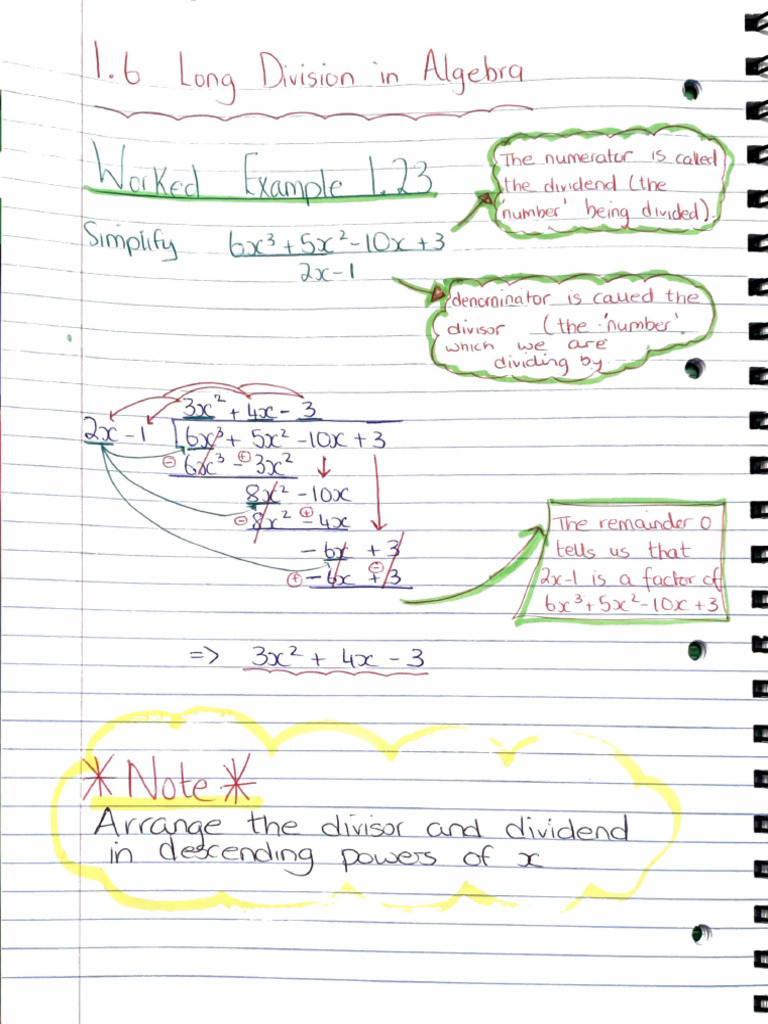 1.6 Long Division in Algebra
Worked Example 1.23
The numerator is called
the dividend (the
'number' being divided).
Simplify 6x³ + 5x² - 10x + 3
2x - 1
denominator is called the
divisor (the 'number'
which we are
dividing by.
3x² + 4x - 3
2x - 1 6x³ + 5x² - 10x + 3
⊖ 6x³ ⊕ - 3x²
8x² - 10x
⊖ 8x² ⊕ - 4x
- 6x + 3
⊕ - 6x ⊖ + 3
The remainder 0
tells us that
2x-1 is a factor of
6x³ + 5x² - 10x + 3
=> 3x² + 4x - 3
*Note*
Arrange the divisor and dividend
in descending powers of x